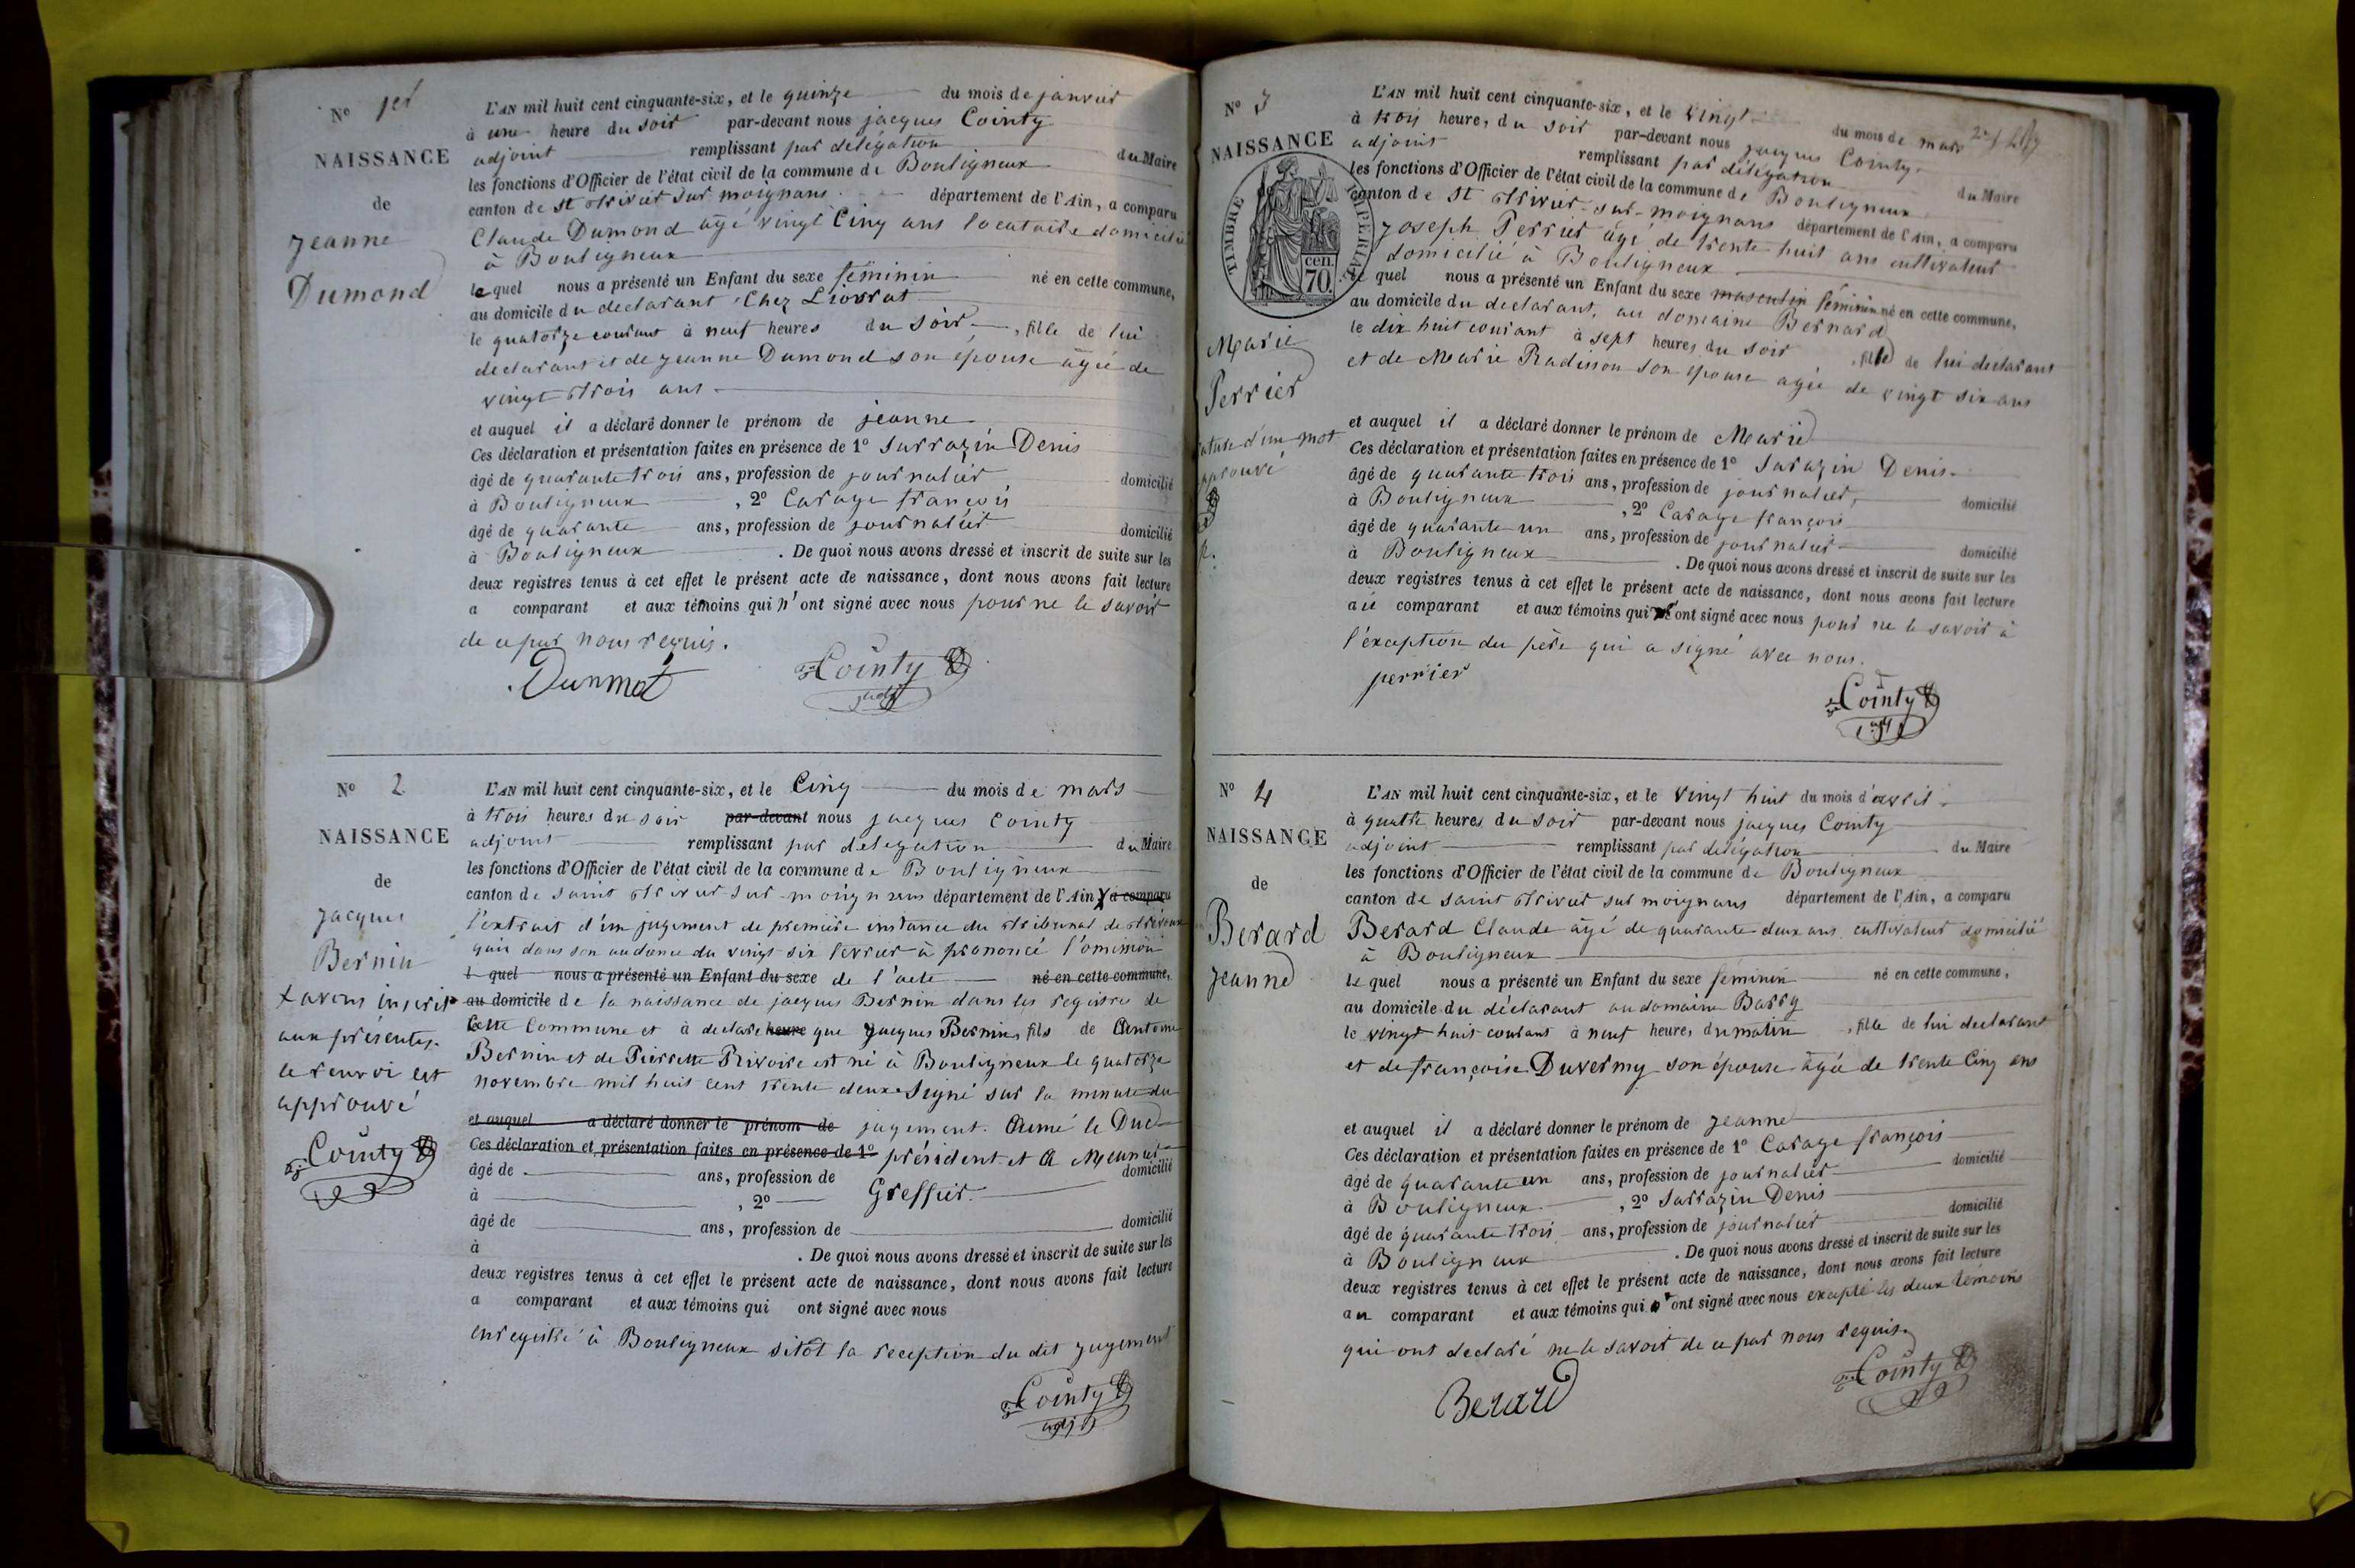 N° 1er
NAISSANCE
de
jeanne
Dumond
L'AN mil huit cent cinquante-six, et le quinze du mois de janvier
à une heure du soir par-devant nous jacques Cointy
adjoint remplissant par délégation du Maire
les fonctions d'Officier de l'état civil de la commune de Bouligneux
canton de st trivier sur moignans département de l'Ain, a comparu
Claude Dumond agé vingt Cinq ans locataire domicilié
à Bouligneux
lequel nous a présenté un Enfant du sexe féminin né en cette commune,
au domicile du declarant Chez Liorrat
le quatorze courant à neuf heures du soir, fille de lui
declarant et de jeanne Dumond son épouse agée de
vingt trois ans
et auquel il a déclaré donner le prénom de jeanne
Ces déclaration et présentation faites en présence de 1° Sarrazin Denis
âgé de quarante trois ans, profession de journalier domicilié
à Bouligneux, 2° Carage françois
âgé de quarante ans, profession de journalier domicilié
à Bouligneux. De quoi nous avons dressé et inscrit de suite sur les
deux registres tenus à cet effet le présent acte de naissance, dont nous avons fait lecture
a comparant et aux témoins qui n'ont signé avec nous pour ne le savoir
de ce par nous requis.
Dunmot Cointy
adj
N° 2
NAISSANCE
de
jacques
Bernin
x avons inscrit
aux présentes.
le renvoi est
approuvé
Cointy
L'AN mil huit cent cinquante-six, et le Cinq du mois de mars
à trois heures du soir par-devant nous jacques Cointy
adjoint remplissant par délégation du Maire
les fonctions d'Officier de l'état civil de la commune de Bouligneux
canton de saint trivier sur moignans département de l'Ain x a comparu
l'extrait d'un jugement de première instance du tribunal de trévoux
qui dans son audience du vingt six fevrier à prononcé l'omission
l quel nous a présenté un Enfant du sexe de l'acte né en cette commune,
au domicile de la naissance de jacques Bernin dans les registres de
Cette Commune et à declaré heure que jacques Bernin, fils de Antoine
Bernin et de Pierrette Rivoire est né à Bouligneux le quatorze
novembre mil huit cent trente deux. Signé sur la minute du
et auquel a déclaré donner le prénom de jugement. Aimé le Duc
Ces déclaration et présentation faites en présence de 1° président et A Meunier
âgé de ans, profession de domicilié
à , 2° Greffier.
âgé de ans, profession de domicilié
à . De quoi nous avons dressé et inscrit de suite sur les
deux registres tenus à cet effet le présent acte de naissance, dont nous avons fait lecture
a comparant et aux témoins qui ont signé avec nous
enregistré à Bouligneux sitôt la reception du dit jugement
Cointy
adj
N° 3
NAISSANCE
TIMBRE IMPERIAL
70 cen.
Marie
Perrier
rature d'un mot
approuvé
L'AN mil huit cent cinquante-six, et le vingt du mois de mars
à trois heures du soir par-devant nous jacques Cointy
adjoint remplissant par délégation du Maire
les fonctions d'Officier de l'état civil de la commune de Bouligneux
canton de st trivier sur moignans département de l'Ain, a comparu
joseph Perrier âgé de trente huit ans cultivateur
domicilié à Bouligneux
le quel nous a présenté un Enfant du sexe masculin féminin né en cette commune,
au domicile du declarant, au domaine Bernard
le dix huit courant à sept heures du soir, fille de lui declarant
et de Marie Radisson son épouse agée de vingt six ans
et auquel il a déclaré donner le prénom de Marie
Ces déclaration et présentation faites en présence de 1° Sarazin Denis
âgé de quarante trois ans, profession de journalier, domicilié
à Bouligneux, 2° Carage françois
âgé de quarante un ans, profession de journalier domicilié
à Bouligneux. De quoi nous avons dressé et inscrit de suite sur les
deux registres tenus à cet effet le présent acte de naissance, dont nous avons fait lecture
au comparant et aux témoins qui n'ont signé avec nous pour ne le savoir à
l'exception du père qui a signé avec nous.
perrier
Cointy
adj
N° 4
NAISSANCE
de
Berard
jeanne
L'AN mil huit cent cinquante-six, et le vingt huit du mois d'avril
à quatre heures du soir par-devant nous jacques Cointy
adjoint remplissant par délégation du Maire
les fonctions d'Officier de l'état civil de la commune de Bouligneux
canton de saint trivier sur moignans département de l'Ain, a comparu
Berard Claude âgé de quarante deux ans cultivateur domicilié
à Bouligneux
le quel nous a présenté un Enfant du sexe féminin né en cette commune,
au domicile du déclarant au domaine Barry
le vingt huit courant à neuf heures du matin, fille de lui declarant
et de françoise Duvermy son épouse âgée de trente Cinq ans
et auquel il a déclaré donner le prénom de jeanne
Ces déclaration et présentation faites en présence de 1° Carage françois
âgé de quarante un ans, profession de journalier domicilié
à Bouligneux, 2° Sarrazin Denis
âgé de quarante trois ans, profession de journalier domicilié
à Bouligneux. De quoi nous avons dressé et inscrit de suite sur les
deux registres tenus à cet effet le présent acte de naissance, dont nous avons fait lecture
au comparant et aux témoins qui ont signé avec nous excepté les deux témoins
qui ont declaré ne le savoir de ce par nous requis.
Berard Cointy